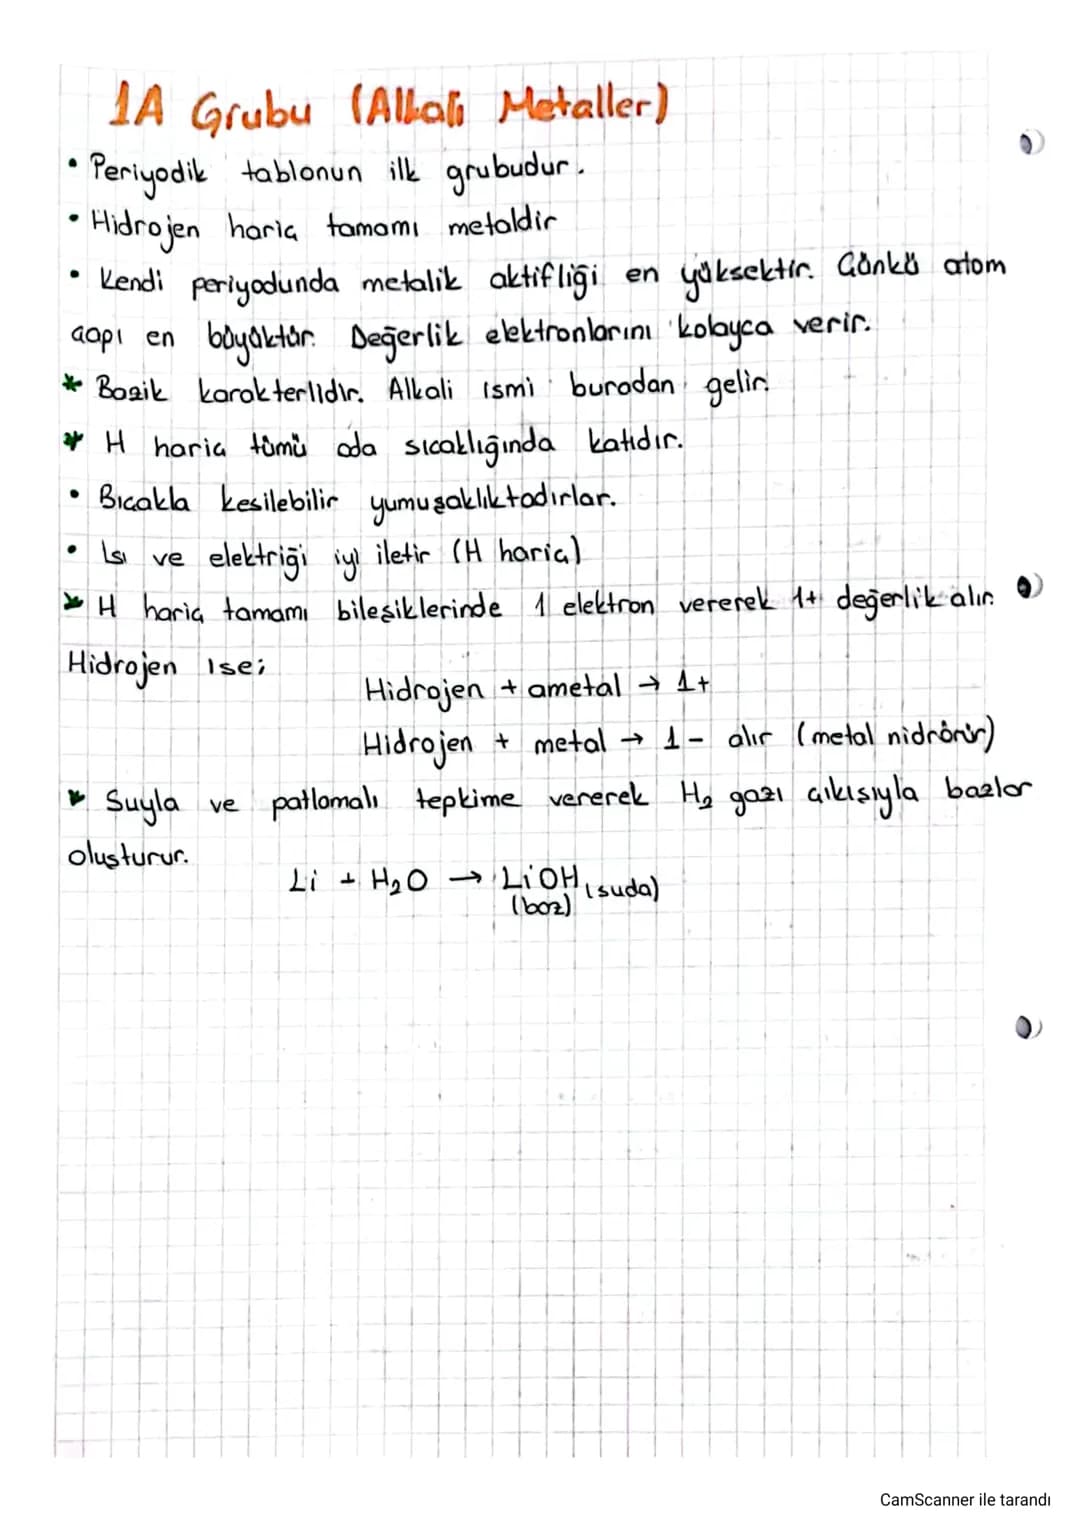 1A Grubu (Alkali Metaller)
• Periyodik tablonun ilk grubudur.
• Hidrojen hariç tamamı metaldir
• Kendi periyodunda metalik aktifliği en yüksektir. Çünkü atom
çapı en büyüktür. Değerlik elektronlarını kolayca verir.
* Bazik karakterlidir. Alkali ismi buradan gelir.
* H hariç tümü oda sıcaklığında katıdır.
• Bıçakla kesilebilir yumuşaklıktadırlar.
• Isı ve elektriği iyi iletir (H hariç)
* H hariç tamamı bileşiklerinde 1 elektron vererek 1+ değerlik alır.
Hidrojen ise;
Hidrojen + ametal → 1+
Hidrojen + metal → 1- alır (metal hidrürür)
* Suyla ve patlamalı tepkime vererek H₂ gazı çıkışıyla bazlar
oluşturur.
Li + H₂O → LiOH (suda)
(baz)
CamScanner ile tarandı